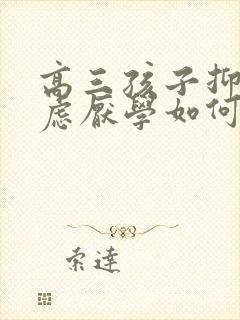 高三孩子抑
虑厌學如何
索達